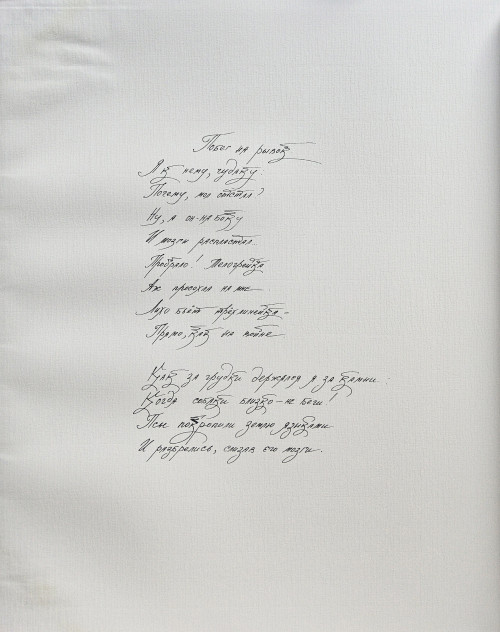 Побег на рывок
Я к нему, чудаку:
Почему, мол отстал?
Ну, а он-на боку
И мозги распластал.
Пробрало! Телогрейка
Аж просохла на мне
Лихо бьёт трёхлинейка –
Прямо, как на войне

Как за грудки держался я за камни:
Когда собаки близко – не беги!
Псы покропили землю языками
И разбрелись, слизав его мозги.